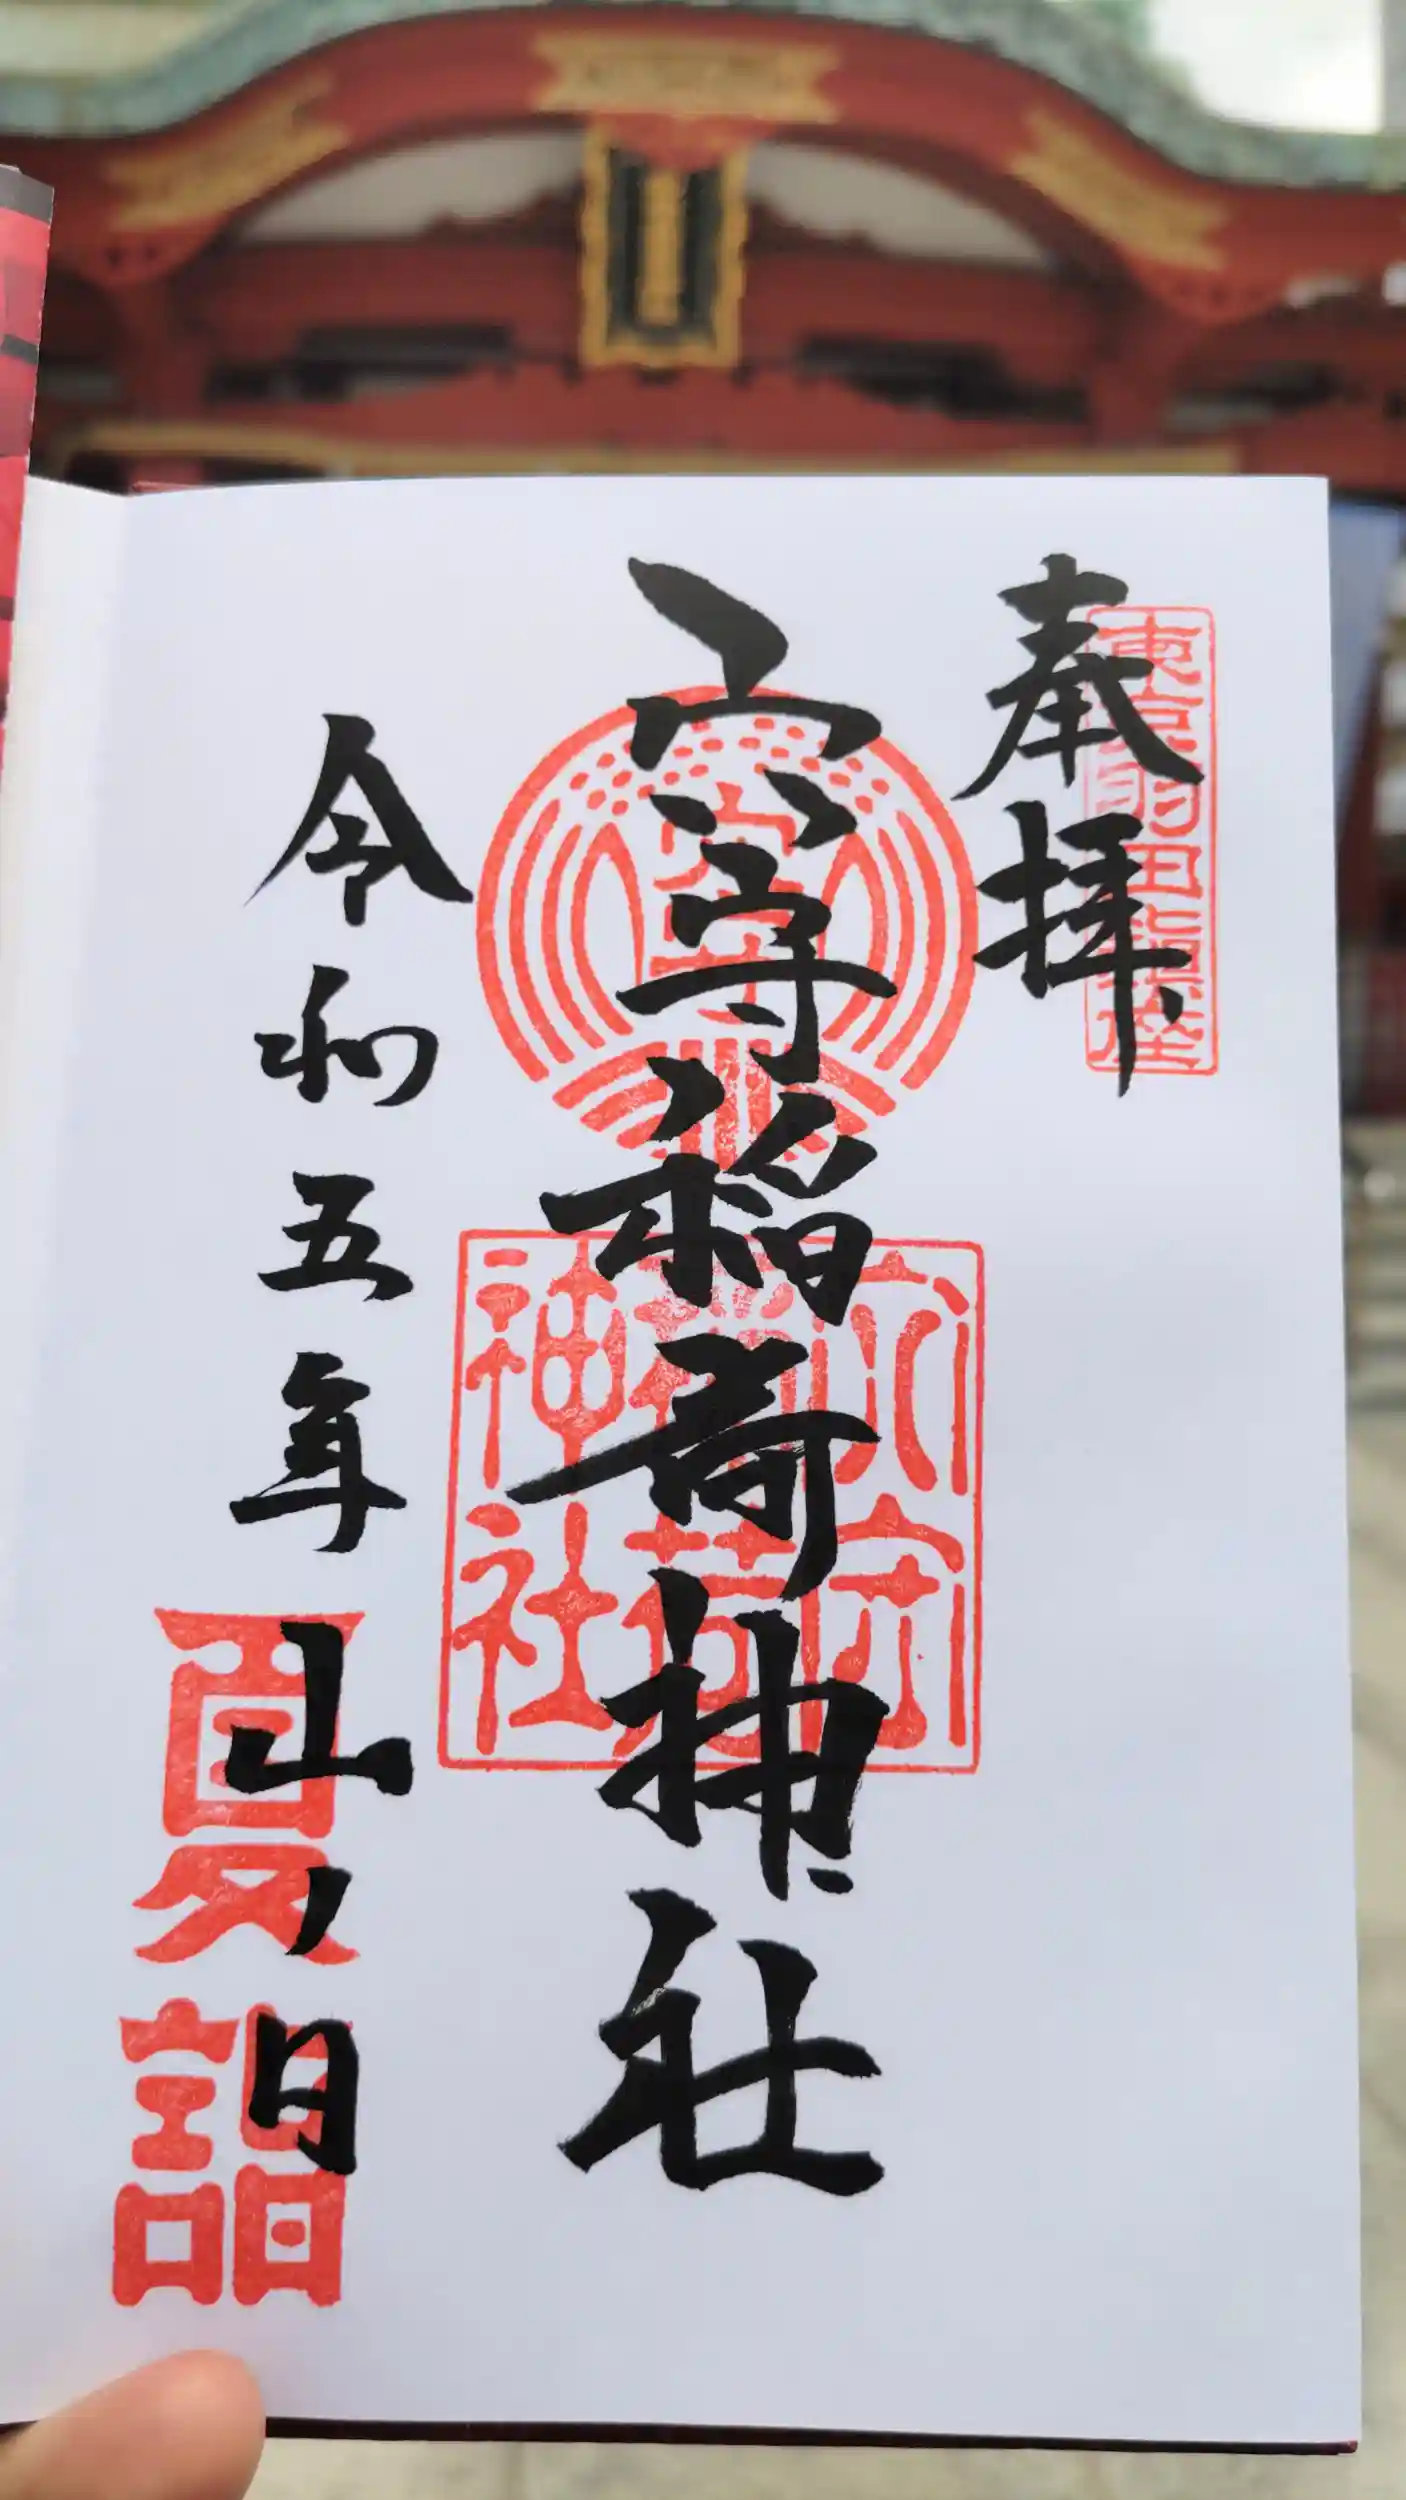 奉拝
東京羽田鎮座
穴守稲荷神社
穴守
穴守
稲荷
神社
令和五年 日
夏詣